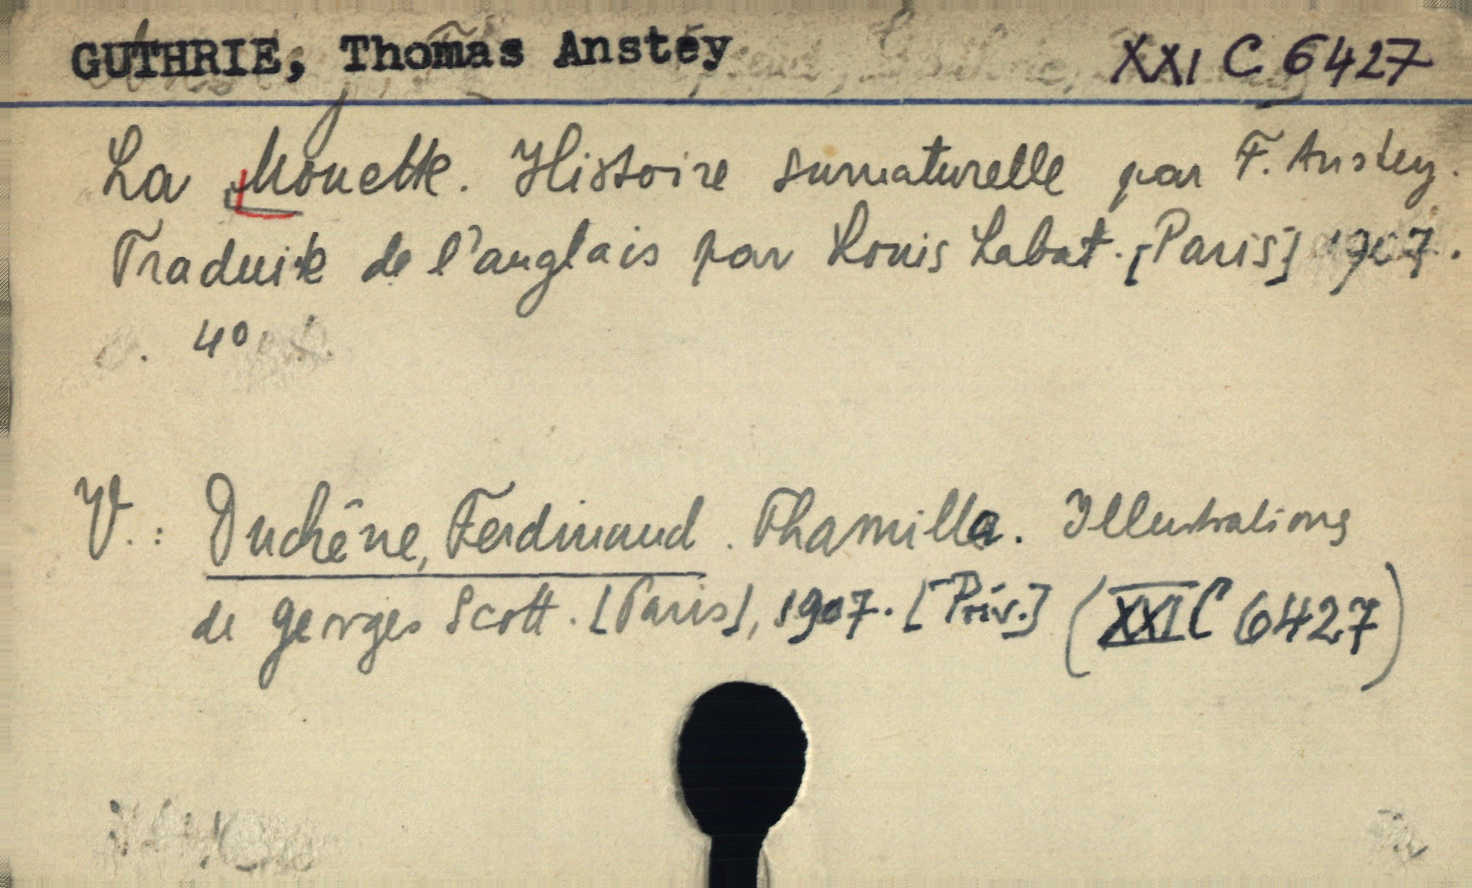 GUTHRIE, Thomas Anstey XXI C 6427
La Mouette. Histoire surnaturelle par F. Anstey.
Traduite de l'anglais par Louis Labat. [Paris] 1907.
4º
V.: Duchêne, Ferdinand. Thamilla. Illustrations
de Georges Scott. [Paris], 1907. [Priv.] (XXI C 6427)